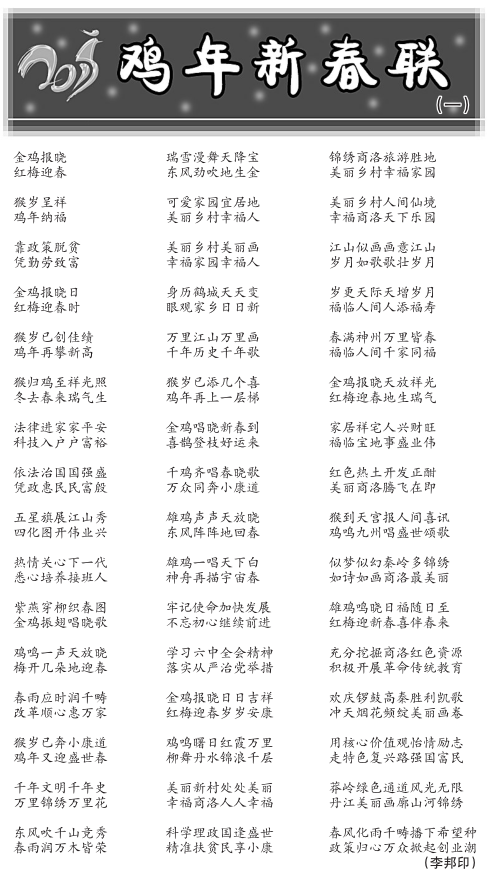 2017
鸡年新春联
(一)
金鸡报晓
红梅迎春
猴岁呈祥
鸡年纳福
靠政策脱贫
凭勤劳致富
金鸡报晓日
红梅迎春时
猴岁已创佳绩
鸡年再攀新高
猴归鸡至祥光照
冬去春来瑞气生
法律进家家平安
科技入户户富裕
依法治国国强盛
凭政惠民民富殷
五星旗展江山秀
四化图开伟业兴
热情关心下一代
悉心培养接班人
紫燕穿柳织春图
金鸡振翅唱晓歌
鸡鸣一声天放晓
梅开几朵地迎春
春雨应时润千畴
改革顺心惠万家
猴岁已奔小康道
鸡年又迎盛世春
千年文明千年史
万里锦绣万里花
东风吹千山竞秀
春雨润万木皆荣
瑞雪漫舞天降宝
东风劲吹地生金
可爱家园宜居地
美丽乡村幸福人
美丽乡村美丽画
幸福家园幸福人
身历鹤城天天变
眼观家乡日日新
万里江山万里画
千年历史千年歌
猴岁已添几个喜
鸡年再上一层梯
金鸡唱晓新春到
喜鹊登枝好运来
千鸡齐唱春晓歌
万众同奔小康道
雄鸡声声天放晓
东风阵阵地回春
雄鸡一唱天下白
神舟再描宇宙春
牢记使命加快发展
不忘初心继续前进
学习六中全会精神
落实从严治党举措
金鸡报晓日日吉祥
红梅迎春岁岁安康
鸡鸣曙日红霞万里
柳舞丹水锦浪千层
美丽新村处处美丽
幸福商洛人人幸福
科学理政国逢盛世
精准扶贫民享小康
锦绣商洛旅游胜地
美丽乡村幸福家园
美丽乡村人间仙境
幸福商洛天下乐园
江山似画画意江山
岁月如歌歌壮岁月
岁更天际天增岁月
福临人间人添福寿
春满神州万里皆春
福临人间千家同福
金鸡报晓天放祥光
红梅迎春地生瑞气
家居祥宅人兴财旺
福临宝地事盛业伟
红色热土开发正酣
美丽商洛腾飞在即
猴到天宫报人间喜讯
鸡鸣九州唱盛世颂歌
似梦似幻秦岭多锦绣
如诗如画商洛最美丽
雄鸡鸣晓日福随日至
红梅迎新春喜伴春来
充分挖掘商洛红色资源
积极开展革命传统教育
欢庆锣鼓高奏胜利凯歌
冲天烟花频绽美丽画卷
用核心价值观怡情励志
走特色复兴路强国富民
莽岭绿色通道风光无限
丹江美丽画廊山河锦绣
春风化雨千畴播下希望种
政策归心万众掀起创业潮
(李邦印)